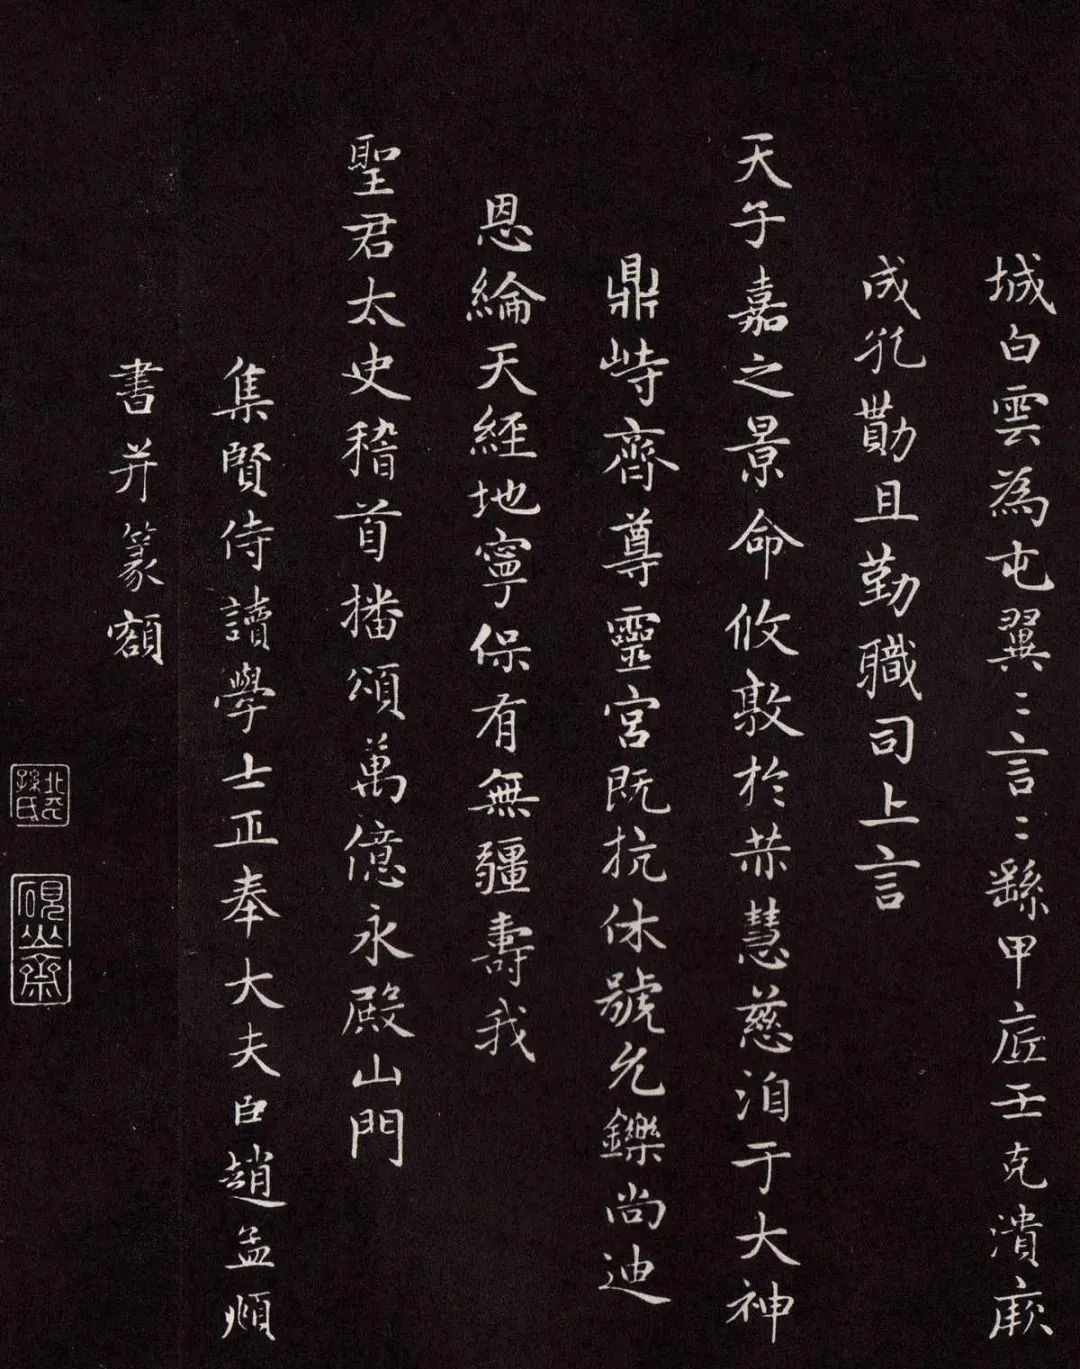 城白雲為屯翼〻言〻繇甲庀壬克潰厥
成礼勩且勤職司上言
天子嘉之景命攸敷於恭慧慈洎于大神
鼎峙齊尊靈宮既抗休號允鑠尚迪
恩綸天經地寧保有無疆壽我
聖君太史稽首播頌萬億永殿山門
集賢侍讀學士正奉大夫臣趙孟頫
書并篆額
北平孫氏
硯山齋